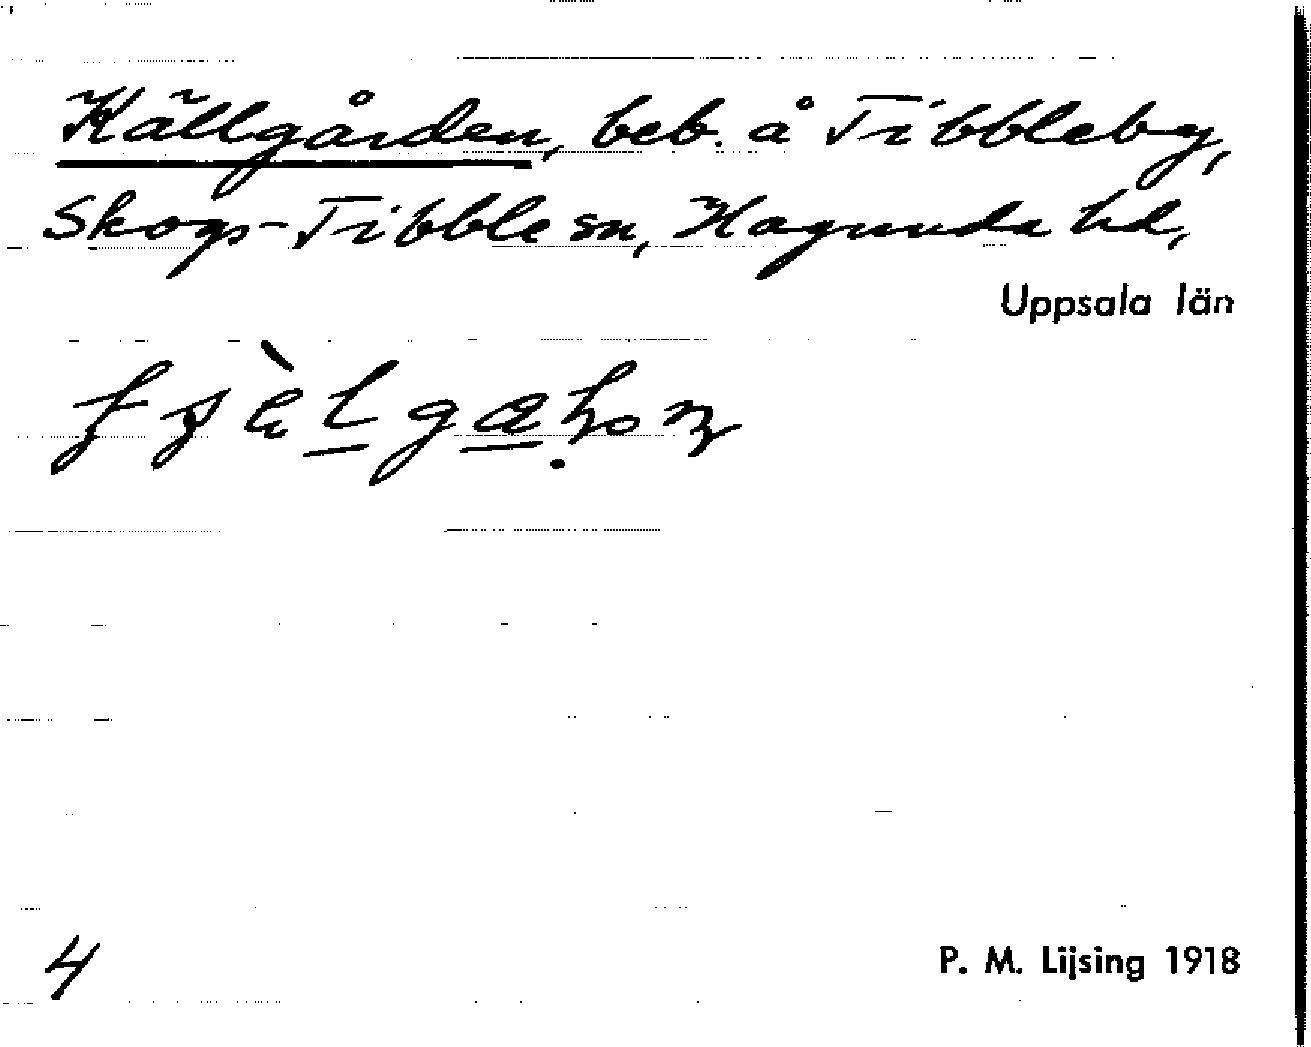 Källgården, beb. å Tibbleby,
Skogs-Tibble sn, Hagunda hd,
Uppsala län
4
P. M. Lijsing 1918